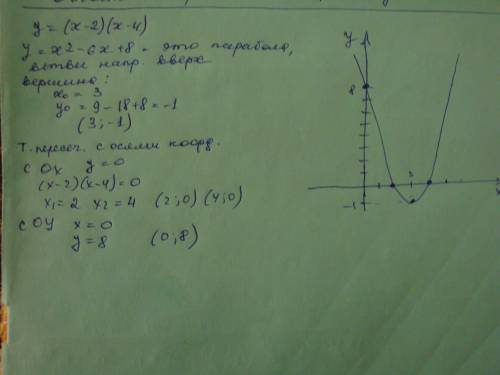 y = (x-2)(x-4)
y = x2 - 6x + 8 - это парабола,
ветви напр. вверх
вершина:
x₀ = 3
y₀ = 9 - 18 + 8 = -1
(3; -1)
Т. пересеч. с осями коорд.
с OX y = 0
(x-2)(x-4) = 0
x₁ = 2 x₂ = 4 (2; 0) (4; 0)
с ОУ x = 0
y = 8 (0; 8)
y
8
3
-1